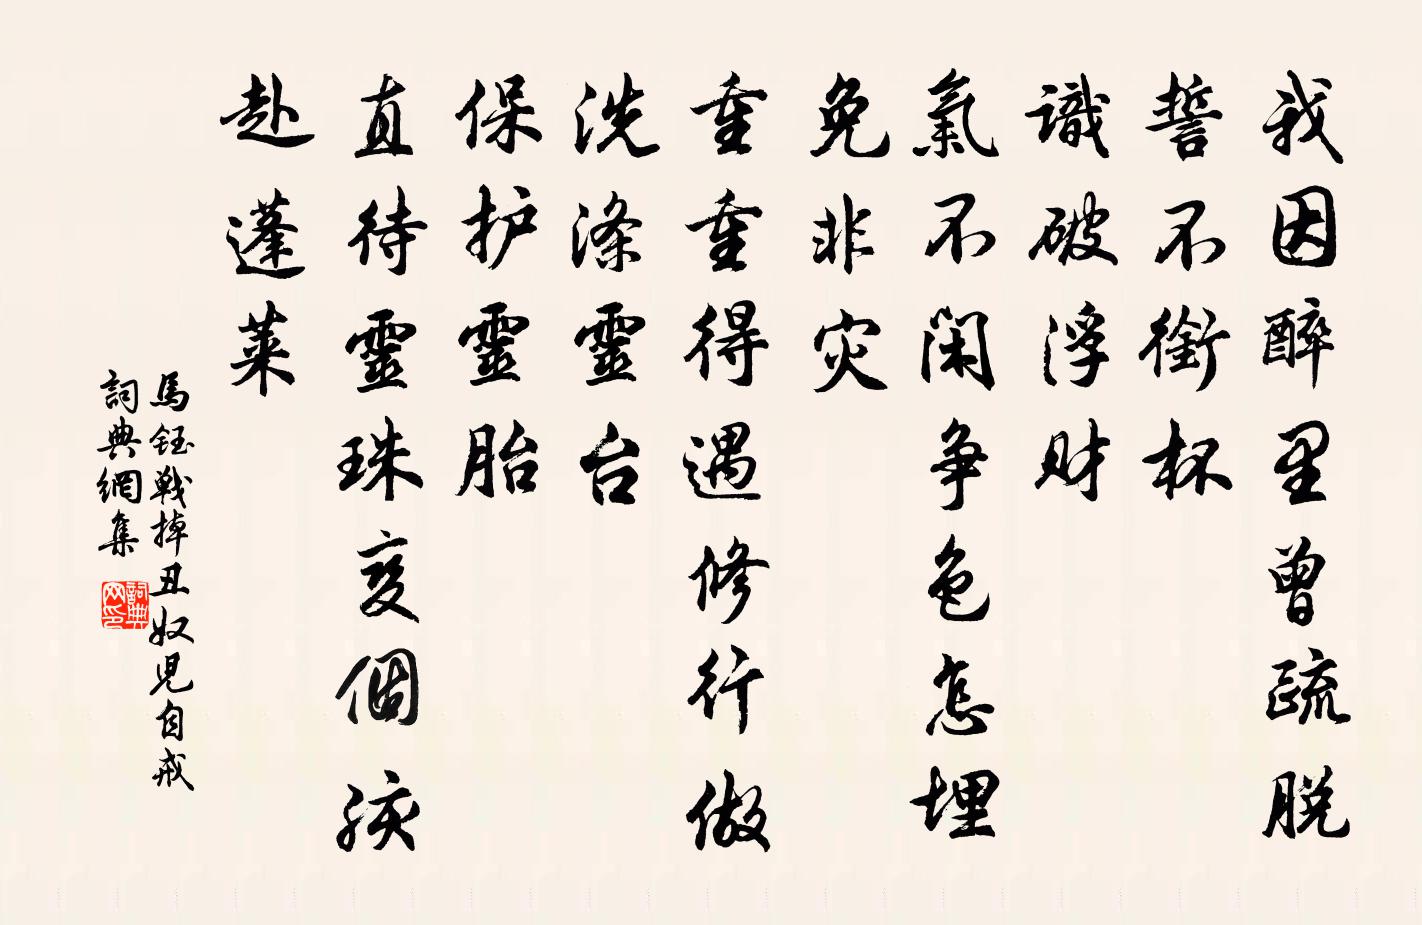 我因醉里曾疏脱
誓不銜杯
識破浮财
氣不閑争色怎埋
免非灾
重重得遇修行做
洗滌靈台
保护靈胎
直待靈珠变個孩
赴蓬莱
馬鈺戰掉丑奴児自戒
詞典網集
詞典网印